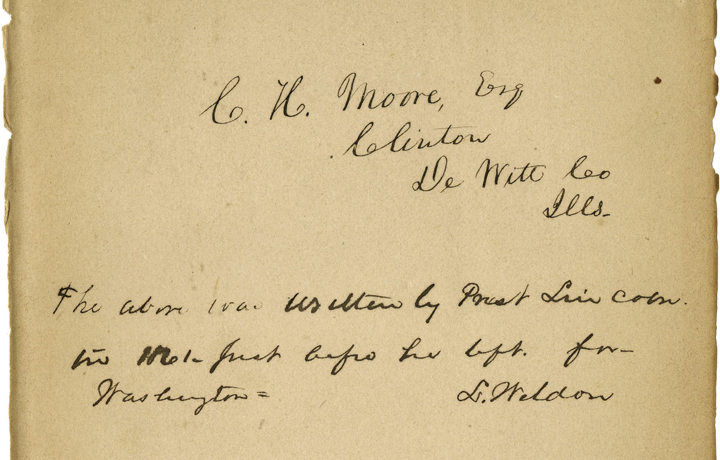 C. H. Moore, Esq
Clinton
De Witt Co
Ills.
The above was written by Prest Lincoln.
in 1861 Just before he left. for
Washington=
L. Weldon